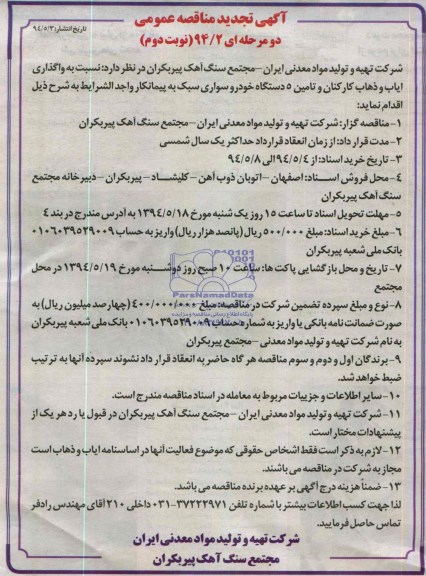 آگهی تجدید مناقصه عمومی
دو مرحله ای ۹۴/۲ (نوبت دوم)
تاریخ انتشار: ۹۴/۵/۳
شرکت تهیه و تولید مواد معدنی ایران-مجتمع سنگ آهک پیربکران در نظر دارد: نسبت به واگذاری
ایاب و ذهاب کارکنان و تامین ۵ دستگاه خودرو سواری سبک به پیمانکار واجد الشرایط به شرح ذیل
اقدام نماید:
۱-مناقصه گزار: شرکت تهیه و تولید مواد معدنی ایران-مجتمع سنگ آهک پیربکران
۲- مدت قرار داد: از زمان انعقاد قرارداد حداکثر یک سال شمسی
۳- تاریخ خرید اسناد: از ۹۴/۵/۴ الی ۹۴/۵/۸
۴- محل فروش اسناد: اصفهان-اتوبان ذوب آهن-کلیشاد-پیربکران-دبیرخانه مجتمع
سنگ آهک پیربکران
۵-مهلت تحویل اسناد تا ساعت ۱۵ روز یک شنبه مورخ ۱۳۹۴/۵/۱۸ به آدرس مندرج در بند ۴
۶-مبلغ خرید اسناد: مبلغ ۵۰۰/۰۰۰ ریال (پانصد هزار ریال) واریز به حساب ۰۱۰۶۰۳۹۵۲۹۰۰۹
بانک ملی شعبه پیربکران
۷- تاریخ و محل بازگشایی پاکت ها: ساعت ۱۰ صبح روز دوشنبه مورخ ۱۳۹۴/۵/۱۹ در محل
مجتمع
۸-نوع و مبلغ سپرده تضمین شرکت در مناقصه: مبلغ ۴۰۰/۰۰۰/۰۰۰ (چهار صد میلیون ریال) به
صورت ضمانت نامه بانکی یا واریز به شماره حساب ۰۱۰۶۰۳۹۵۲۹۰۰۹ بانک ملی شعبه پیربکران
به نام شرکت تهیه و تولید مواد معدنی-مجتمع پیربکران
۹-برندگان اول و دوم و سوم مناقصه هر گاه حاضر به انعقاد قرار داد نشوند سپرده آنها به ترتیب
ضبط خواهد شد.
۱۰-سایر اطلاعات و جزییات مربوط به معامله در اسناد مناقصه مندرج است.
۱۱-شرکت تهیه و تولید مواد معدنی ایران-مجتمع سنگ آهک پیربکران در قبول یا رد هر یک از
پیشنهادات مختار است.
۱۲-لازم به ذکر است فقط اشخاص حقوقی که موضوع فعالیت آنها در اساسنامه ایاب و ذهاب است
مجاز به شرکت در مناقصه می باشند.
۱۳-ضمنا هزینه درج آگهی بر عهده برنده مناقصه می باشد.
لذا جهت کسب اطلاعات بیشتر با شماره تلفن ۳۷۲۲۲۹۷۱-۰۳۱ داخلی ۲۱۰ آقای مهندس رادفر
تماس حاصل فرمایید.
شرکت تهیه و تولید مواد معدنی ایران
مجتمع سنگ آهک پیربکران
ParsNamadData
پایگاه اطلاع رسانی مناقصه و مزایده